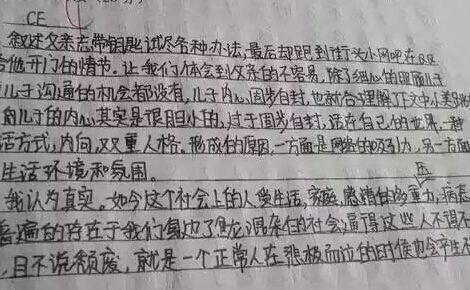 CE
叙述父亲忘带钥匙试尽各种办法,最后却跑到街头小网吧在QQ
给他开门的情节.让我们体会到父亲的不容易,除了细心的照顾儿子
儿子沟通的机会都没有,儿子内心固步自封,也就合理解了文中小美
儿子的内心其实是很胆小的,过于固步自封,活在自己的世界,种
活方式,内向,双重人格.形成的原因,一方面是网络的吸引力,另一方面
生活环境和氛围.
我认为真实.如今这个社会上的人受生活,家庭,感情的多重压力,
普遍的存在于我们身边了鱼龙混杂的社会,逼得这些人不得不
,且不说颓废,就是一个正常人在积极而泣的时候也会产生